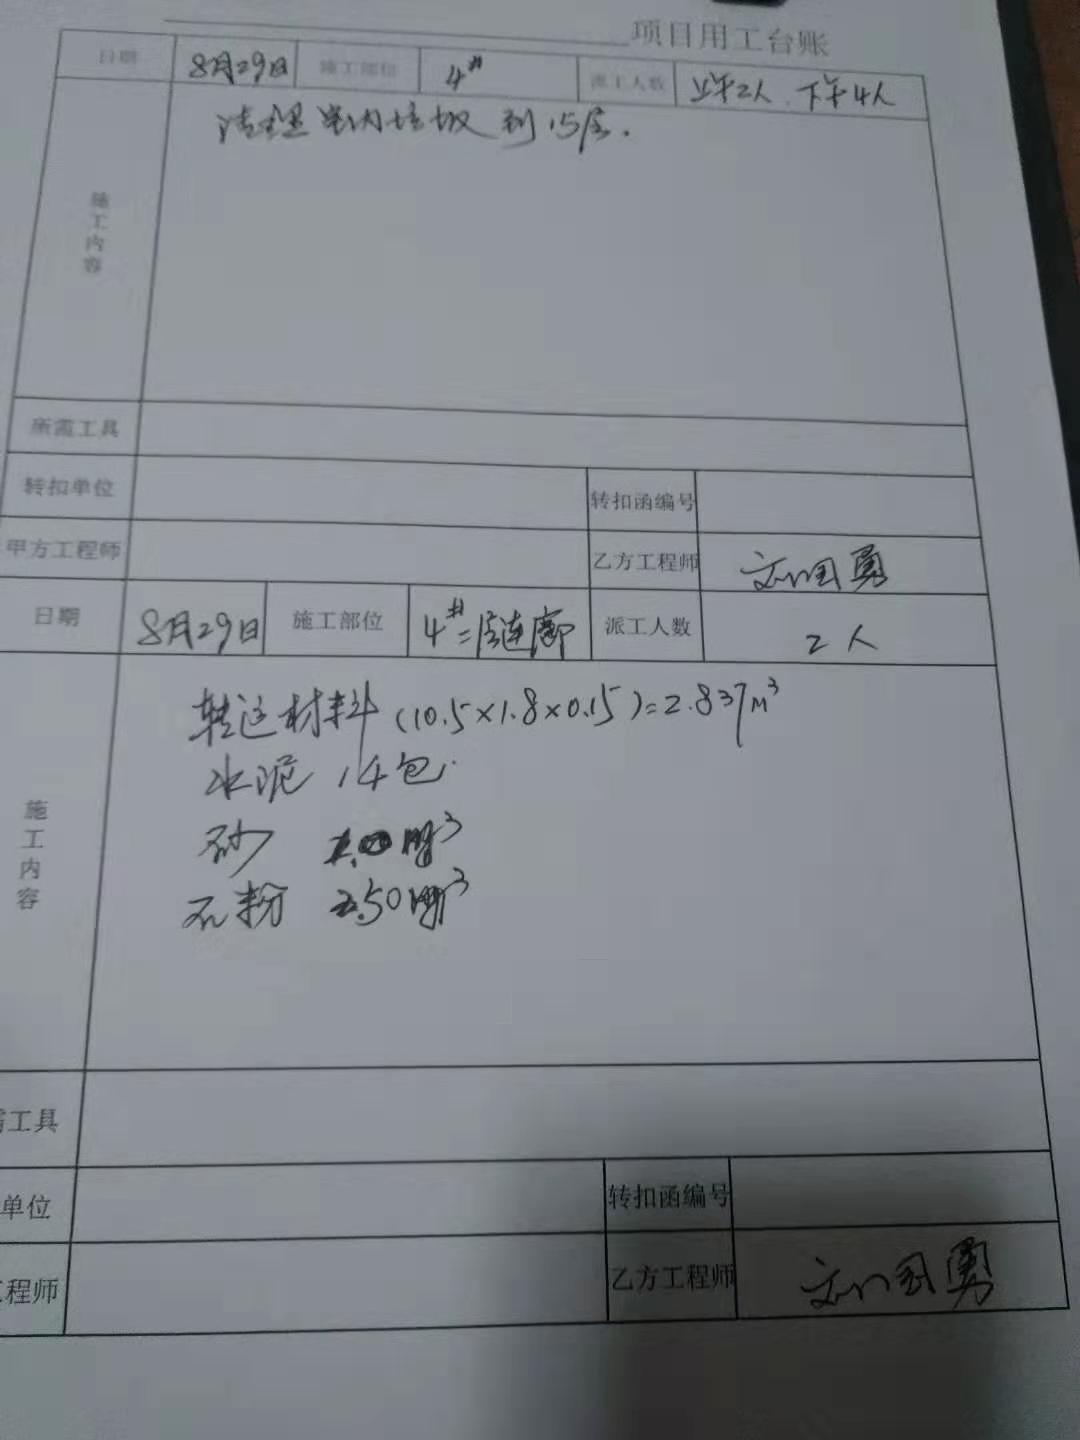 项目用工台账
日期 8月29日 施工部位 4# 派工人数 上午2人 下午4人
施工内容 清理室内垃圾到15层.
所需工具
转扣单位 转扣函编号
甲方工程师 乙方工程师 刘国勇
日期 8月29日 施工部位 4#二层连廊 派工人数 2人
转运材料(10.5×1.8×0.15)=2.837m³
水泥 14包.
施工内容
砂
石粉 2.50
需工具
单位 转扣函编号
工程师 乙方工程师 刘国勇